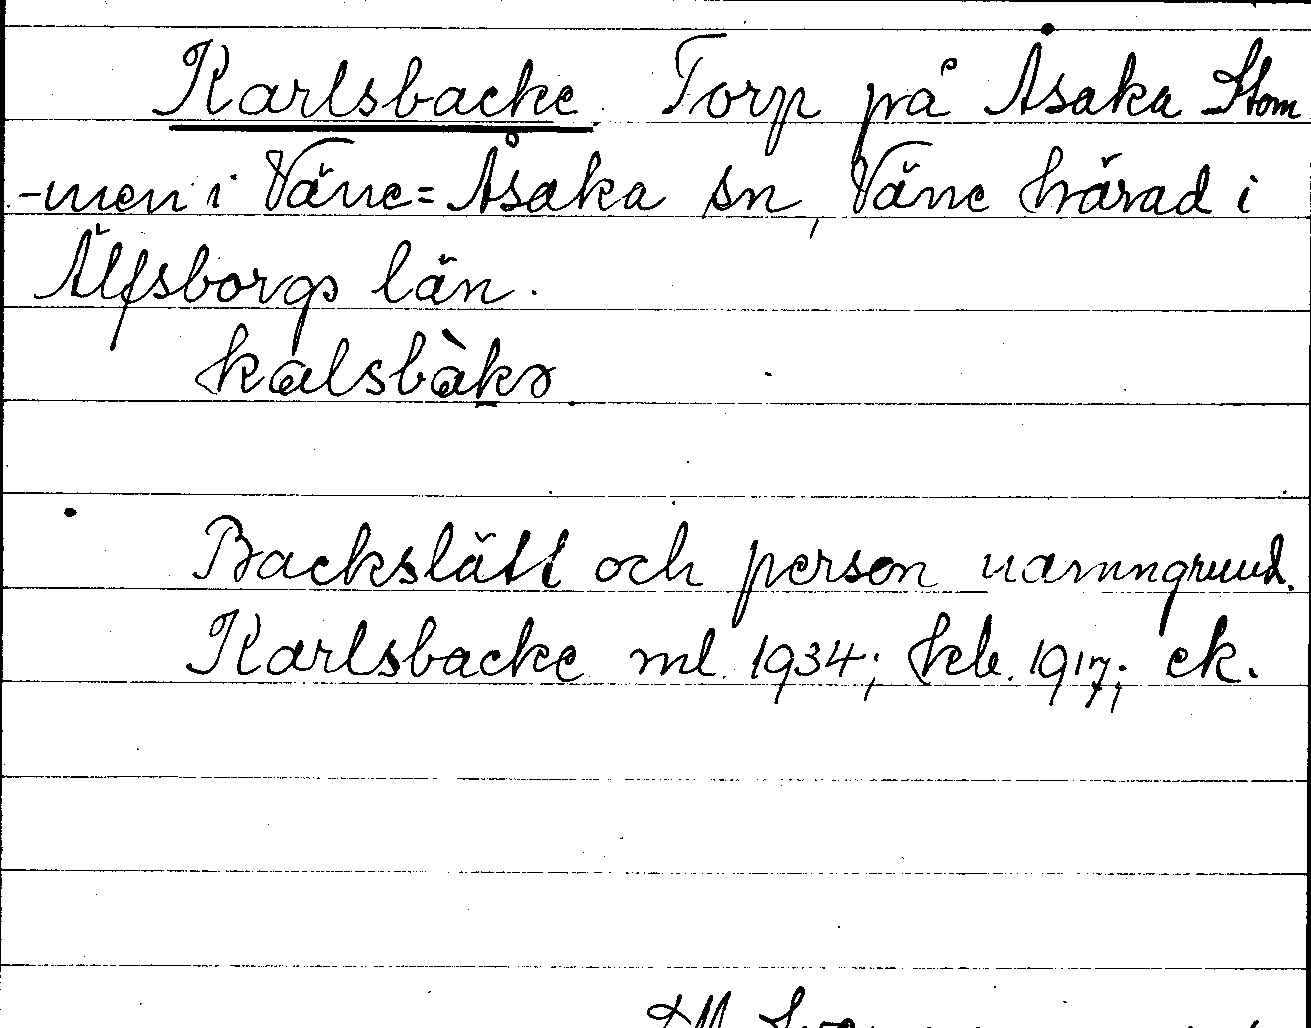 Karlsbacke. Torp på Åsaka Stom
-men i Väne=Åsaka sn, Väne härad i
Älfsborgs län.
kalsbàkə
Backslätt och person namngrund.
Karlsbacke ml. 1934; hlb. 1917; ek.